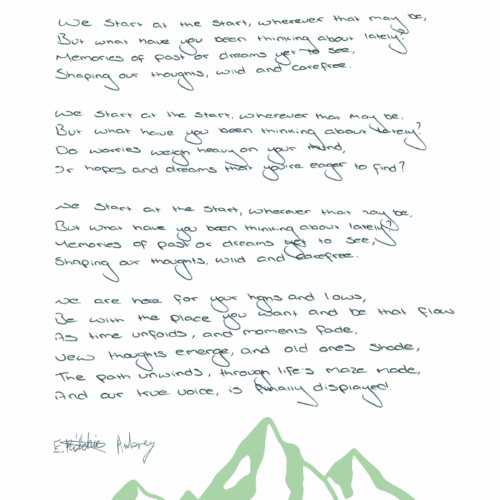 We start at the start, wherever that may be,
But what have you been thinking about lately?
Memories of past or dreams yet to see,
Shaping our thoughts, wild and carefree.
We start at the start, wherever that may be.
But what have you been thinking about lately?
Do worries weigh heavy on your mind,
Or hopes and dreams that you're eager to find?
We start at the start, wherever that may be,
But what have you been thinking about lately?
Memories of past or dreams yet to see,
Shaping our thoughts, wild and carefree.
We are here for your highs and lows,
Be with the place you want and be that flow
As time unfolds, and moments fade,
New thoughts emerge, and old ones shade,
The path unwinds, through life's maze made,
And our true voice, is finally displayed.
Aubrey